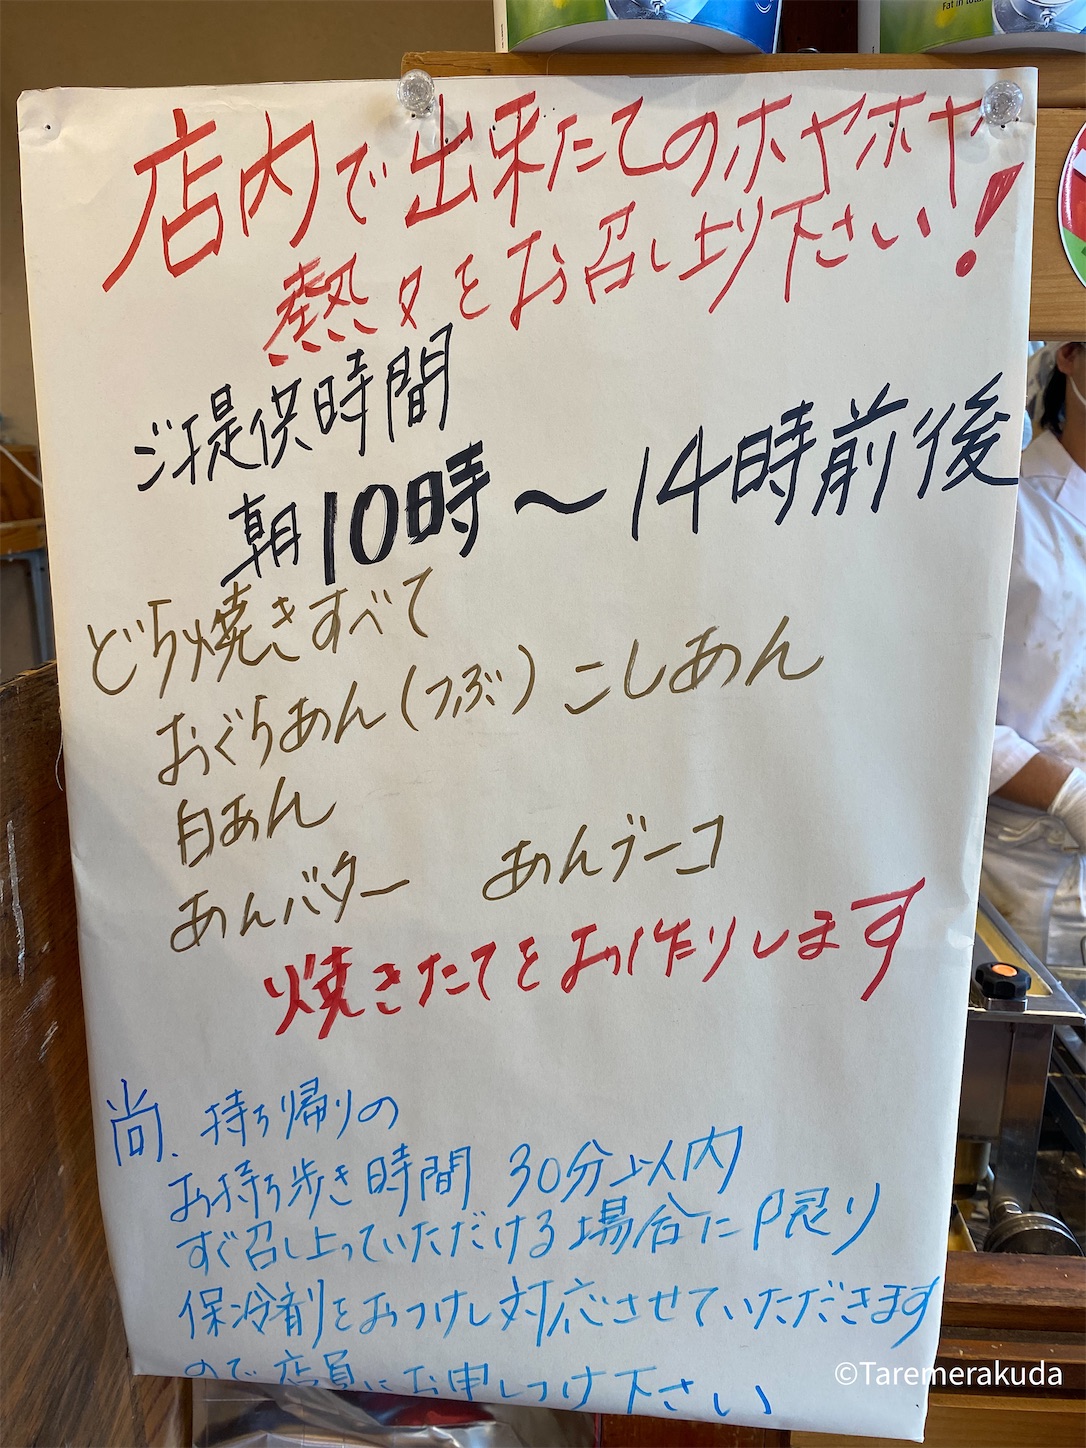 Fat in total
店内で出来たてのホヤホヤ
熱々をお召し上り下さい!
ご提供時間
朝10時〜14時前後
どら焼きすべて
おぐらあん(つぶ) こしあん
白あん
あんバター あんブーコ
焼きたてをお作りします
尚、持ち帰りの
お持ち歩き時間 30分以内
すぐ召し上っていただける場合に限り
保冷剤をおつけし対応させていただきます
ので店員にお申しつけ下さい
©Taremerakuda